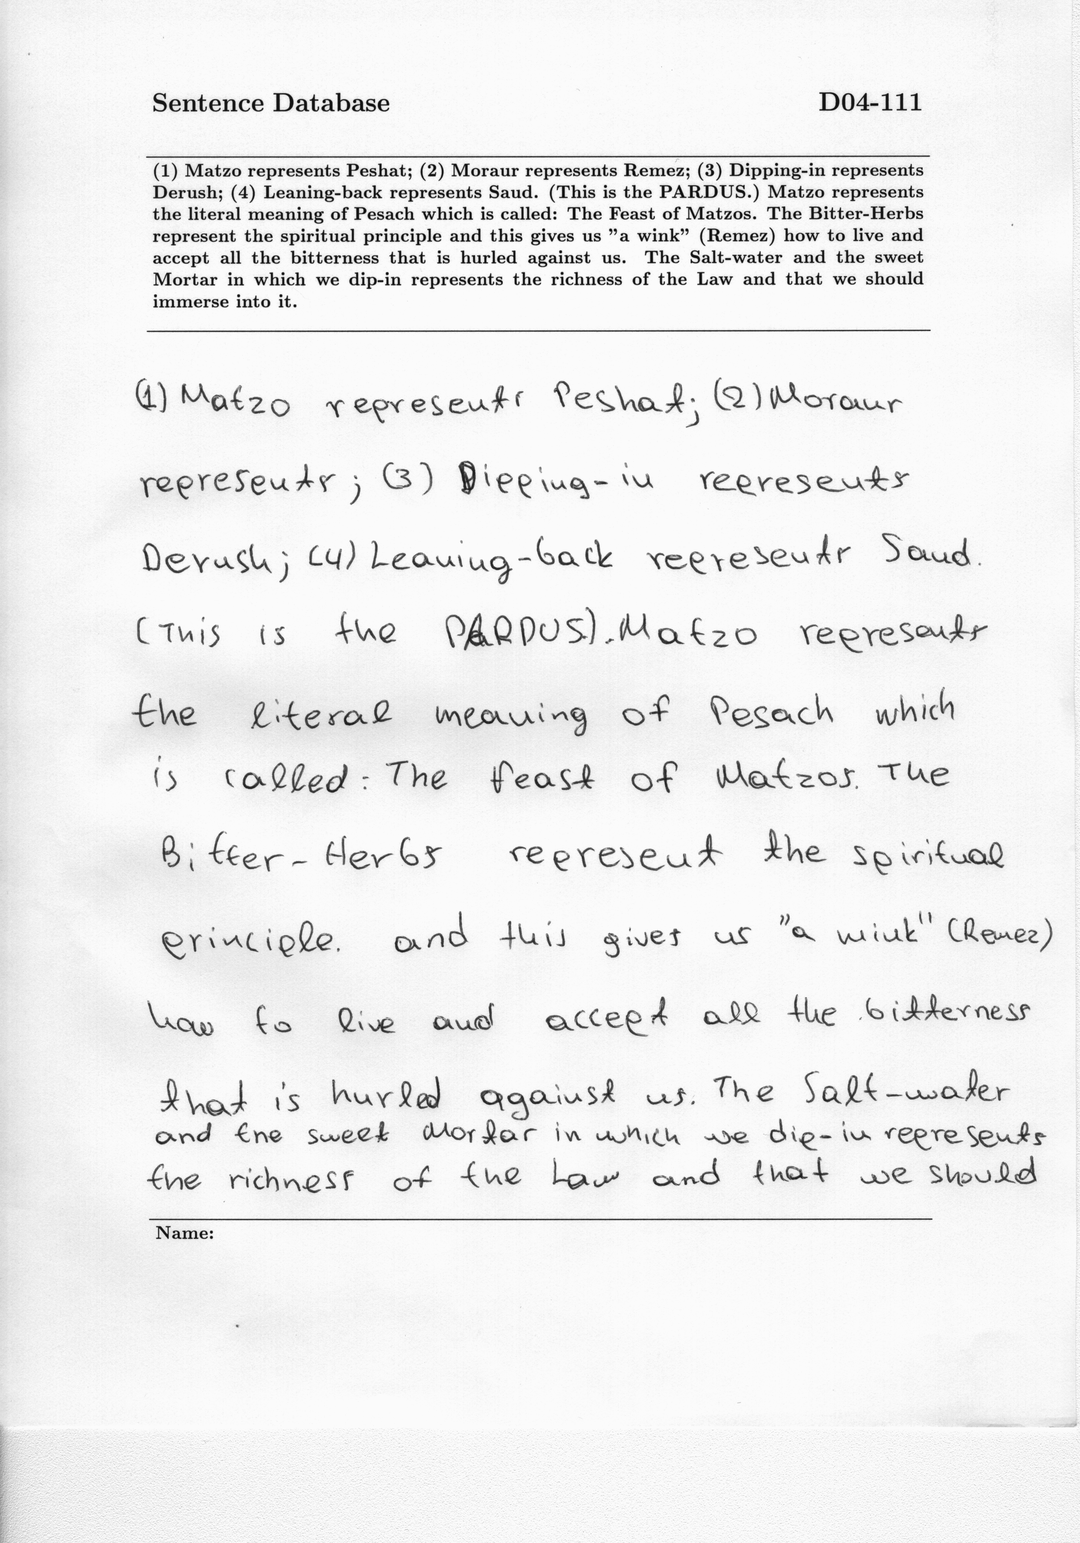 Sentence Database D04-111
(1) Matzo represents Peshat; (2) Moraur represents Remez; (3) Dipping-in represents
Derush; (4) Leaning-back represents Saud. (This is the PARDUS.) Matzo represents
the literal meaning of Pesach which is called: The Feast of Matzos. The Bitter-Herbs
represent the spiritual principle and this gives us "a wink" (Remez) how to live and
accept all the bitterness that is hurled against us. The Salt-water and the sweet
Mortar in which we dip-in represents the richness of the Law and that we should
immerse into it.
(1) Matzo represents Peshat; (2) Moraur
represents; (3) Dipping-in represents
Derush; (4) Leaning-back represents Saud.
(This is the PARDUS). Matzo represents
the literal meaning of Pesach which
is called: The feast of Matzos. The
Bitter-Herbs represent the spiritual
principle. and this gives us "a wink" (Remez)
how to live and accept all the bitterness
that is hurled against us. The Salt-water
and the sweet Mortar in which we dip-in represents
the richness of the Law and that we should
Name: